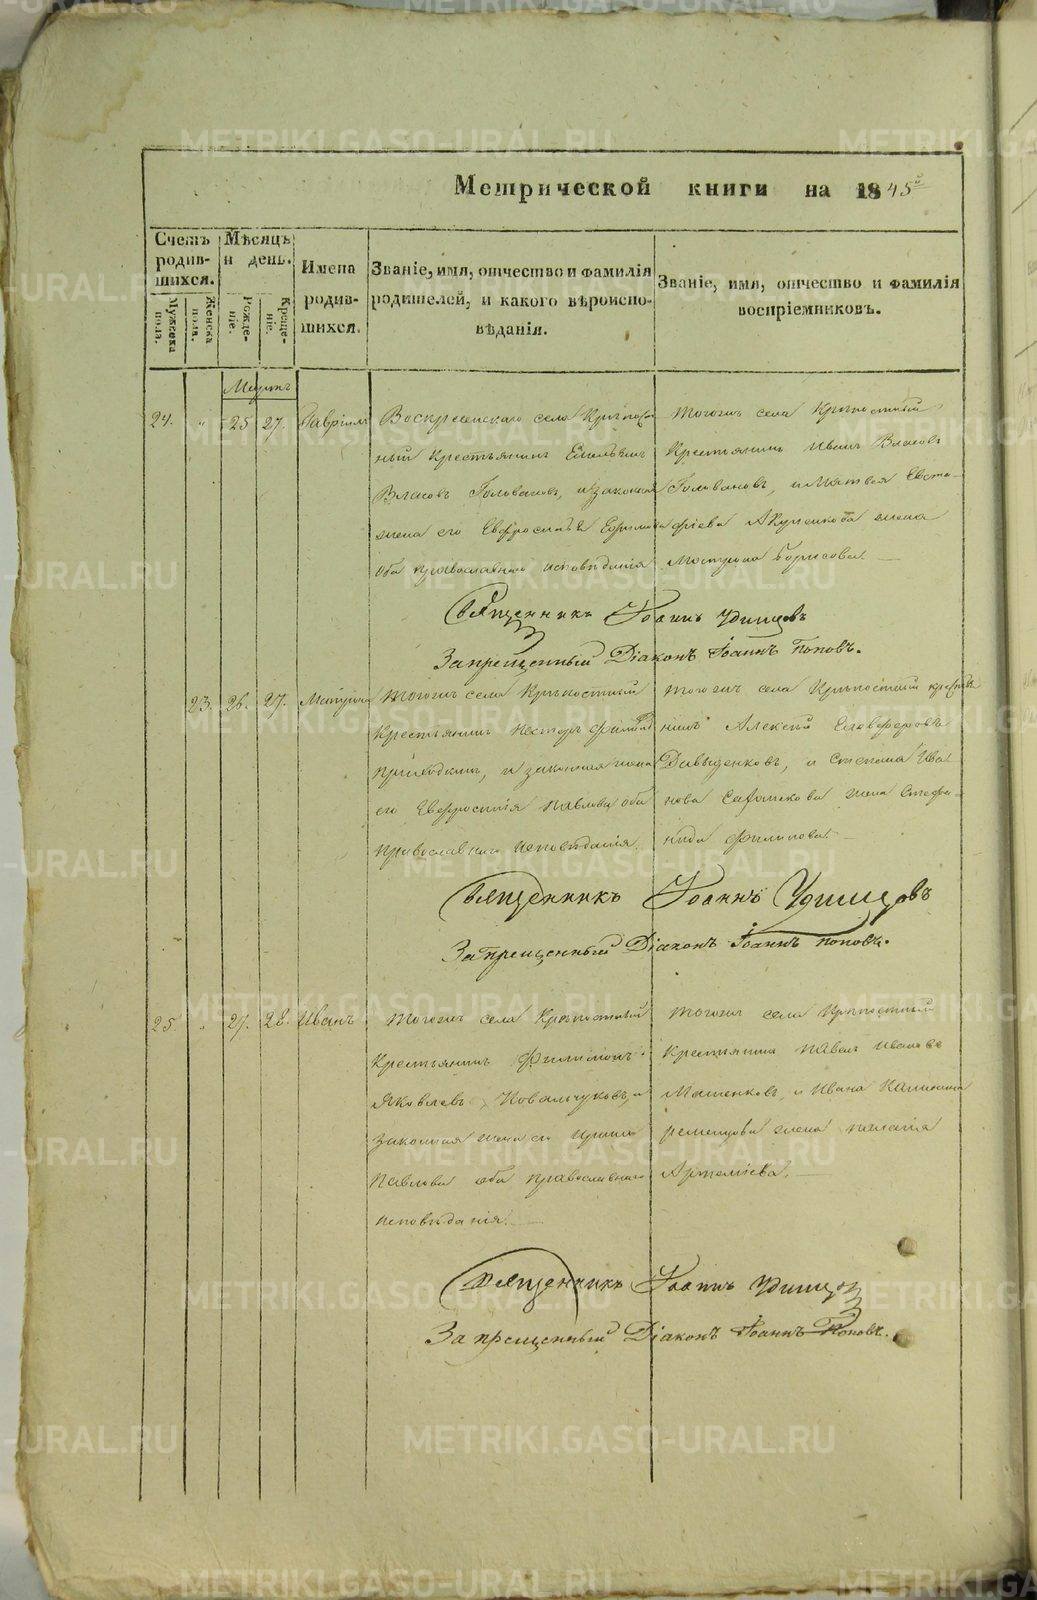 METRIKI.GASO-URAL.RU
Метрической книги на 1845й
Счетъ родив-шихся.
Мѣсяцъ и день.
Имена родив-шихся.
Званіе, имя, отчество и фамилія родителей, и какого вѣроиспо-вѣданія.
Званіе, имя, отчество и фамилія воспріемниковъ.
Мужеска пола.
Женска пола.
Рожде-ніе.
Креще-ніе.
Мартъ
24. " 25 27. Гавріилъ
Воскресенскаго села Крѣпост
ный Крестьянинъ Емельянъ
Власовъ Головановъ, и законная
жена его Евфросинья Ефимова
оба православнаго исповѣданія
Тогожъ села Крѣпостный
Крестьянинъ Иванъ Власовъ
Головановъ, и Матвея Евста-
фіева жена
Матрона Борисова
Священникъ Іоаннъ Удинцовъ
Запрещенный Діаконъ Іоаннъ Поповъ.
23. 26. 27. Матрона
Тогожъ села Крѣпостный
Крестьянинъ Несторъ
и законная жена
его Евфросинія Павлова оба
православнаго исповѣданія.
Тогожъ села Крѣпостный кресть
нинъ Алексѣй Елевферовъ
Давыденковъ, и Степана Ива
нова жена Стефа-
нида Филипова.
Священникъ Іоаннъ Удинцовъ
Запрещенный Діаконъ Іоаннъ Поповъ.
25. " 27. 28. Иванъ
Тогожъ села Крѣпостный
Крестьянинъ Филимонъ
Яковлевъ Ковальчуковъ, и
законная жена его Ирина
Павлова оба православнаго
исповѣданія.
Тогожъ села Крѣпостный
Крестьянинъ Павелъ Ивановъ
Машенковъ, и Ивана Калинина
жена Пелагія
Артемѣева.
Священникъ Іоаннъ Удинцов
Запрещенный Діаконъ Іоаннъ Поповъ.